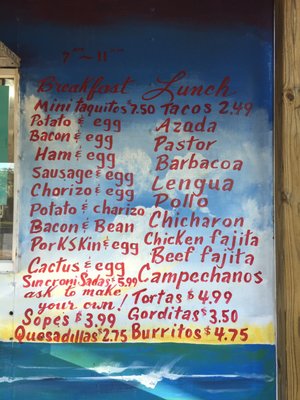 7 - 11
Breakfast
Mini taquitos $7.50
Potato & egg
Bacon & egg
Ham & egg
Sausage & egg
Chorizo & egg
Potato & charizo
Bacon & Bean
PorKSKin & egg
Cactus & egg
SincroniSadas $5.99
ask to make
your own!
Sopes $3.99
Quesadillas $2.75
Lunch
Tacos 2.49
Azada
Pastor
Barbacoa
Lengua
Pollo
Chicharon
Chicken fajita
Beef fajita
Campechanos
Tortas $4.99
Gorditas $3.50
Burritos $4.75